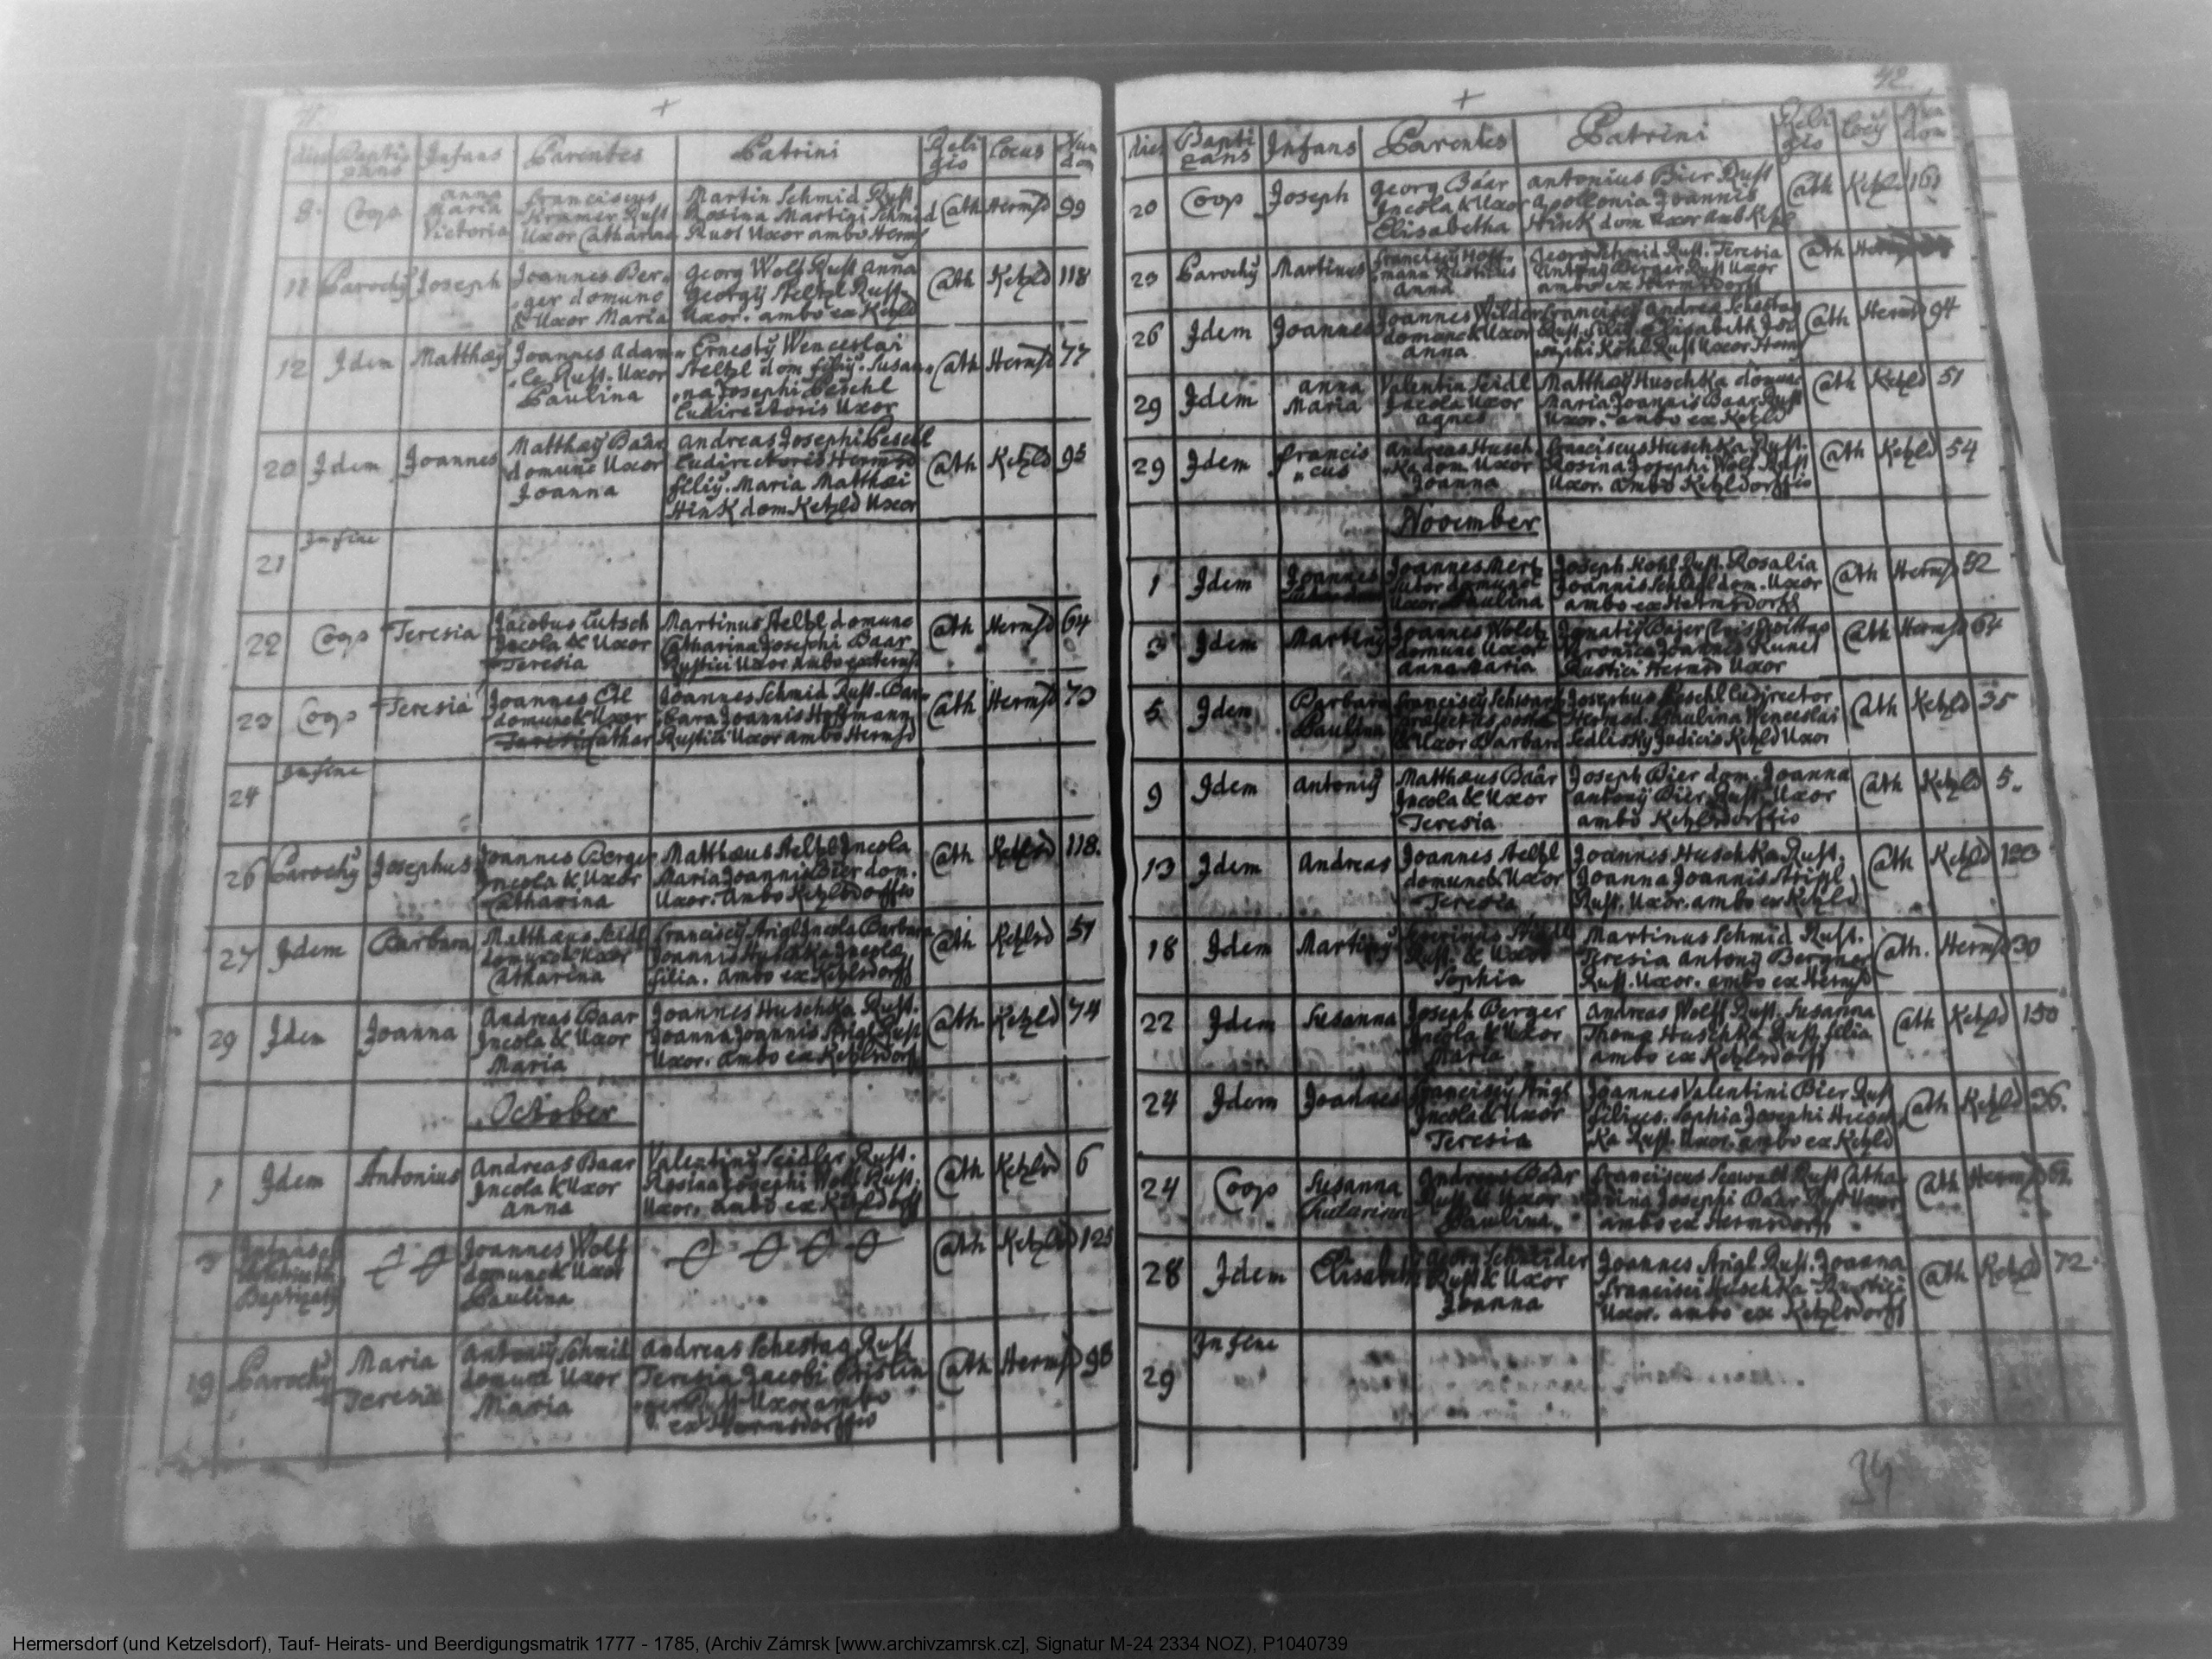 dies Baptizans Infans Parentes Patrini Religio Locus Num dom
8. Coop Anna Maria Victoria
Franciscus Kramer Rust Uxor Catharina
Martin Schmid Rust
Rosina Martini Schmid
Rust Uxor ambo Herms
Cath Hermsd 99
11 Parochy Joseph
Joannes Ber„
„ger domunc
& Uxor Maria
Georg Wolf Rust Anna
Georgij Aeltzl Rust„
Uxor. ambo ex Ketzld
Cath Ketzld 118
12 Idem Matthæy
Joannes Adam„
„le Rust. Uxor
Paulina
Ernesty Wenceslai
Aeltzl dom filiy. Susan„
„na Josephi Peschl
Ludirectoris Uxor
Cath Hermsd 77
20 Idem Joannes
Matthæy Baar
domunc Uxor
Joanna
Andreas Josephi Peschl
Ludirectoris Hermsd
filiy. Maria Matthæi
Hink dom Ketzld Uxor
Cath Ketzld 95
21 In fine
22 Coop Teresia
Jacobus Lutsch
Incola & Uxor
Teresia
Martinus Aeltzl domunc
Catharina Josephi Baar
Rustici Uxor ambo ex Hermsd
Cath Hermsd 64
23 Coop Teresia
Joannes
domunc & Uxor
Teresia Cathar
Joannes Schmid Rust. Bar„
„bara Joannis Hoffmann
Rustici Uxor ambo Hermsd
Cath Hermsd 73
24 In fine
26 Parochy Josephus
Joannes Berger
Incola & Uxor
Catharina
Matthæus Aeltzl Incola
Maria Joannis Bier dom.
Uxor. Ambo Ketzlsdorffio
Cath Ketzlsd 118.
27 Idem Barbara
Matthæus Seidl
domunc & Uxor
Catharina
Franciscy Arigl Incola Barbara
Joannis Huschka Incola
filia. ambo ex Ketzlsdorff
Cath Ketzlsd 51
29 Idem Joanna
Andreas Baar
Incola & Uxor
Maria
Joannes Huschka Rust.
Joanna Joannis Arigl Rust
Uxor. ambo ex Ketzlsdorff
Cath Ketzld 74
October
1 Idem Antonius
Andreas Baar
Incola & Uxor
Anna
Valentiny Seidler Rust.
Rosina Josephi Wolf Rust.
Uxor. ambo ex Ketzldorff
Cath Ketzlsd 6
Joannes Wolf
domunc & Uxor
Paulina
Cath Ketzlsd 125
19 Parochy Maria Teresia
Antoniy Schmid
domunc Uxor
Maria
Andreas Schestag Rust
Teresia Jacobi Brislin„
„ger Rust Uxor ambo
ex Hermsdorffio
Cath Hermsd 98
42.
dies Baptizans Infans Parentes Patrini Religio Locy Num dom
20 Coop Joseph
Georg Báar
Incola & Uxor
Elisabetha
Antonius Bier Rust
Apollonia Joannis
Hink dom Uxor amb Ktzl
Cath Ketzld 161
23 Parochy Martinus
Franciscy Hoff„
„mann Rusticus
Anna
Georg Schmid Rust. Teresia
Antony Berger Rust Uxor
ambo ex Hermsdorff
Cath
26 Idem Joannes
Joannes Wilder
domunc & Uxor
Anna
Franciscy Andrea Schestag
Rust. filiy. Elisabeth Jo„
„sephi Kohl Rust Uxor Herms
Cath Hermsd 94
29 Idem Anna Maria
Valentin Seidl
Incola Uxor
Agnes
Matthæy Huschka domunc
Maria Joannis Baar Rust
Uxor. ambo ex Ketzld
Cath Ketzld 51
29 Idem Francis„
„cus
Andreas Husch„
„ka dom. Uxor
Joanna
Franciscus Huschka Rust.
Rosina Josephi Wolf Rust
Uxor. ambo Ketzldorffio
Cath Ketzld 54
November
1 Idem Joannes
Joannes Mertz
Sutor domunc
Uxor Paulina
Joseph Kohl Rust. Rosalia
Joannis Schlesl dom. Uxor
ambo ex Hermsdorff
Cath Hermsd 52
3 Idem Martiny
Joannes
domunc Uxor
Anna Maria
Ignatiy Bajer
Veronica Joannis Kunel
Rustici Hermsd Uxor
Cath Hermsd 64
5 Idem Barbara Paulina
Franciscy Schwarz
& Uxor Barbara
Josephus Peschl Ludirector
Hermsd. Paulina Wenceslai
Sedlisky Judicis Ketzld Uxor
Cath Ketzld 35
9 Idem Antoniy
Matthæus Baâr
Incola & Uxor
Teresia
Joseph Bier dom. Joanna
Antony Bier Rust. Uxor
ambo Ketzlsdorffio
Cath Ketzld 5.
13 Idem Andreas
Joannes Aeltzl
domunc & Uxor
Teresia
Joannes Huschka Rust.
Joanna Joannis Arigl
Rust. Uxor. ambo ex Ketzld
Cath Ketzld
18 Idem Martiny
Rust. & Uxor
Sophia
Martinus Schmid Rust.
Teresia Antony Bergner
Rust. Uxor. ambo ex Hermsd
Cath. Hermsd 30
22 Idem Susanna
Joseph Berger
Incola & Uxor
Maria
Andreas Wolff Rust. Susanna
Thoma Huschka Rust. filia
ambo ex Ketzlsdorff
Cath Ketzld 150
24 Idem Joannes
Franciscy Arigl
Incola & Uxor
Teresia
Joannes Valentini Bier Rust
filius. Sophia Josephi Husch„
„ka Rust. Uxor. ambo ex Ketzld
Cath Ketzld 96.
24 Coop Susanna Catarina
Andreas Báar
Rust & Uxor
Paulina
Franciscus Seewald Rust Catha„
„rina Josephi Báar Rust Uxor
ambo ex Hermsdorff
Cath Hermsd
28 Idem Elisabeth
Georg Schneider
Rust & Uxor
Joanna
Joannes Arigl Rust. Joanna
Francisci Huschka Rustici
Uxor. ambo ex Ketzlsdorff
Cath Ketzld 72
29 In fine
34
Hermersdorf (und Ketzelsdorf), Tauf- Heirats- und Beerdigungsmatrik 1777 - 1785, (Archiv Zámrsk [www.archivzamrsk.cz], Signatur M-24 2334 NOZ), P1040739